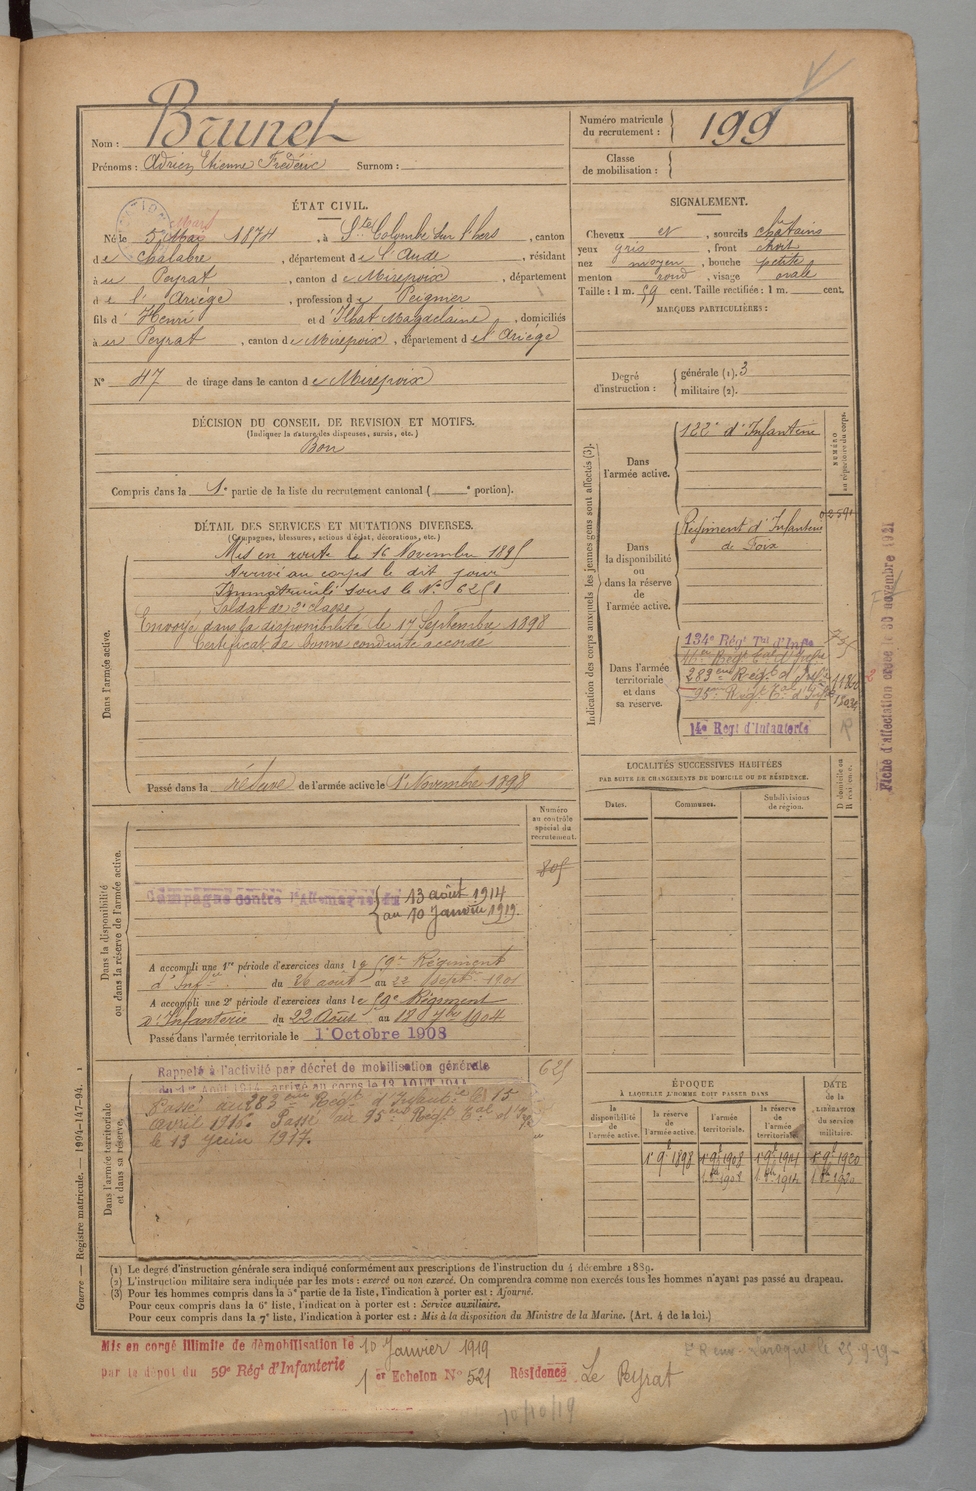 Nom : Brunet
Prénoms : Adrien Etienne Frédéric Surnom :
Numéro matricule du recrutement : 199
Classe de mobilisation :
ÉTAT CIVIL.
Mars
Né le 5 Mai 1874, à Ste Colombe sur l'hers, canton
de Chalabre, département de l'Aude, résidant
à Le Peyrat, canton de Mirepoix, département
de l'Ariège, profession de Peignier
fils d' Henri et d' Ilhat Magdelaine, domiciliés
à Le Peyrat, canton de Mirepoix, département de l'Ariège
N° 47 de tirage dans le canton de Mirepoix
SIGNALEMENT.
Cheveux et, sourcils châtains
yeux gris, front étroit
nez moyen, bouche petite
menton rond, visage ovale
Taille : 1 m. 59 cent. Taille rectifiée : 1 m. cent.
MARQUES PARTICULIÈRES :
Degré d'instruction : générale (1). 3
militaire (2).
DÉCISION DU CONSEIL DE REVISION ET MOTIFS.
(Indiquer la nature des dispenses, sursis, etc.)
Bon
Compris dans la 1e partie de la liste du recrutement cantonal ( e portion).
DÉTAIL DES SERVICES ET MUTATIONS DIVERSES.
(Campagnes, blessures, actions d'éclat, décorations, etc.)
Dans l'armée active.
Mis en route le 16 Novembre 1895
Arrivé au corps le dit jour
Immatriculé sous le N° 6251
Soldat de 2e classe
Envoyé dans la disponibilité le 17 Septembre 1898
Certificat de bonne conduite accordé
Passé dans la réserve de l'armée active le 1er Novembre 1898
Indication des corps auxquels les jeunes gens sont affectés (3).
NUMÉRO au répertoire du corps.
Dans l'armée active.
122e d'Infanterie
Dans la disponibilité ou dans la réserve de l'armée active.
Régiment d'Infanterie
de Foix
Dans l'armée territoriale et dans sa réserve.
134e Régt Tal d'Infie
283eme Régt d'Infie
95e Régt Tal d'Infie
14e Régt d'Infanterie
Fiche d'affectation créée le 30 novembre 1931
LOCALITÉS SUCCESSIVES HABITÉES
PAR SUITE DE CHANGEMENTS DE DOMICILE OU DE RÉSIDENCE.
Dates. Communes. Subdivisions de région. D domicile ou R résidence.
Dans la disponibilité ou dans la réserve de l'armée active.
Numéro au contrôle spécial du recrutement.
805
Campagne contre l'Allemagne du 13 août 1914
au 10 Janvier 1919
A accompli une 1re période d'exercices dans le 59e Régiment
d'Infie du 26 août au 22 septe 1901
A accompli une 2e période d'exercices dans le 59e Régiment
d'Infanterie du 22 Août au 18 7bre 1904
Passé dans l'armée territoriale le 1 Octobre 1908
Dans l'armée territoriale et dans sa réserve.
Rappelé à l'activité par décret de mobilisation générale
du 1er Août 1914, arrivé au corps le 13 AOUT 1914
625
Passé au 283eme Régt d'Infanterie le 15
avril 1916. Passé au 95eme Régt Tal d'Infie
le 13 Juin 1917.
ÉPOQUE
À LAQUELLE L'HOMME DOIT PASSER DANS
la disponibilité de l'armée active. la réserve de l'armée active. l'armée territoriale. la réserve de l'armée territoriale.
DATE de la LIBÉRATION du service militaire.
1er 9bre 1898 1er 9bre 1908 1er 9bre 1914 1er 9bre 1920
Guerre — Registre matricule. — 1994-147-94.
(1) Le degré d'instruction générale sera indiqué conformément aux prescriptions de l'instruction du 4 décembre 1889.
(2) L'instruction militaire sera indiquée par les mots : exercé ou non exercé. On comprendra comme non exercés tous les hommes n'ayant pas passé au drapeau.
(3) Pour les hommes compris dans la 5e partie de la liste, l'indication à porter est : Ajourné.
Pour ceux compris dans la 6e liste, l'indication à porter est : Service auxiliaire.
Pour ceux compris dans la 7e liste, l'indication à porter est : Mis à la disposition du Ministre de la Marine. (Art. 4 de la loi.)
Mis en congé illimité de démobilisation le 10 Janvier 1919
par le dépôt du 59e Régt d'Infanterie
1er Echelon N° 521 Résidence Le Peyrat
10/10/19